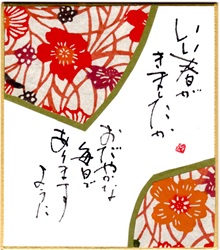 いい春が
きましたか
おだやかな
毎日が
あります
ように